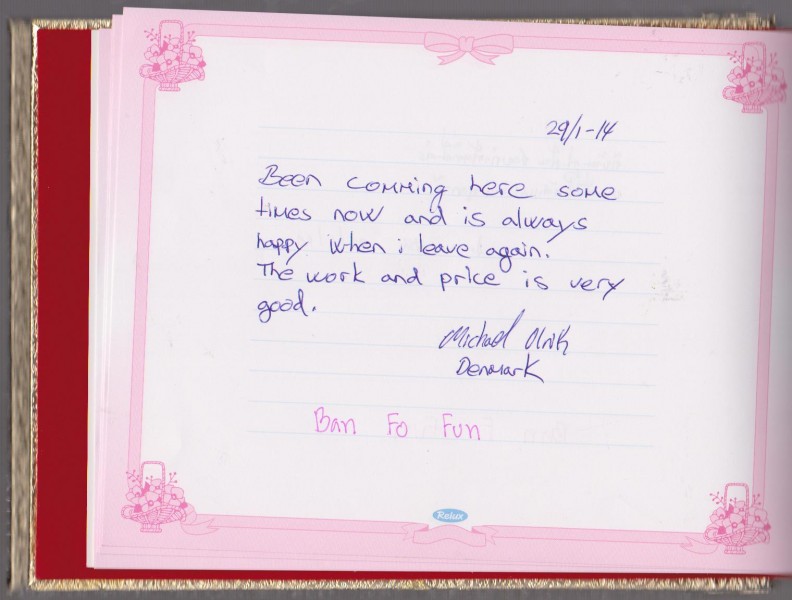 29/1-14
Been comming here some
times now and is always
happy when i leave again.
The work and price is very
good.
Michael Ulrik
Denmark
Ban Fo Fun
Relux